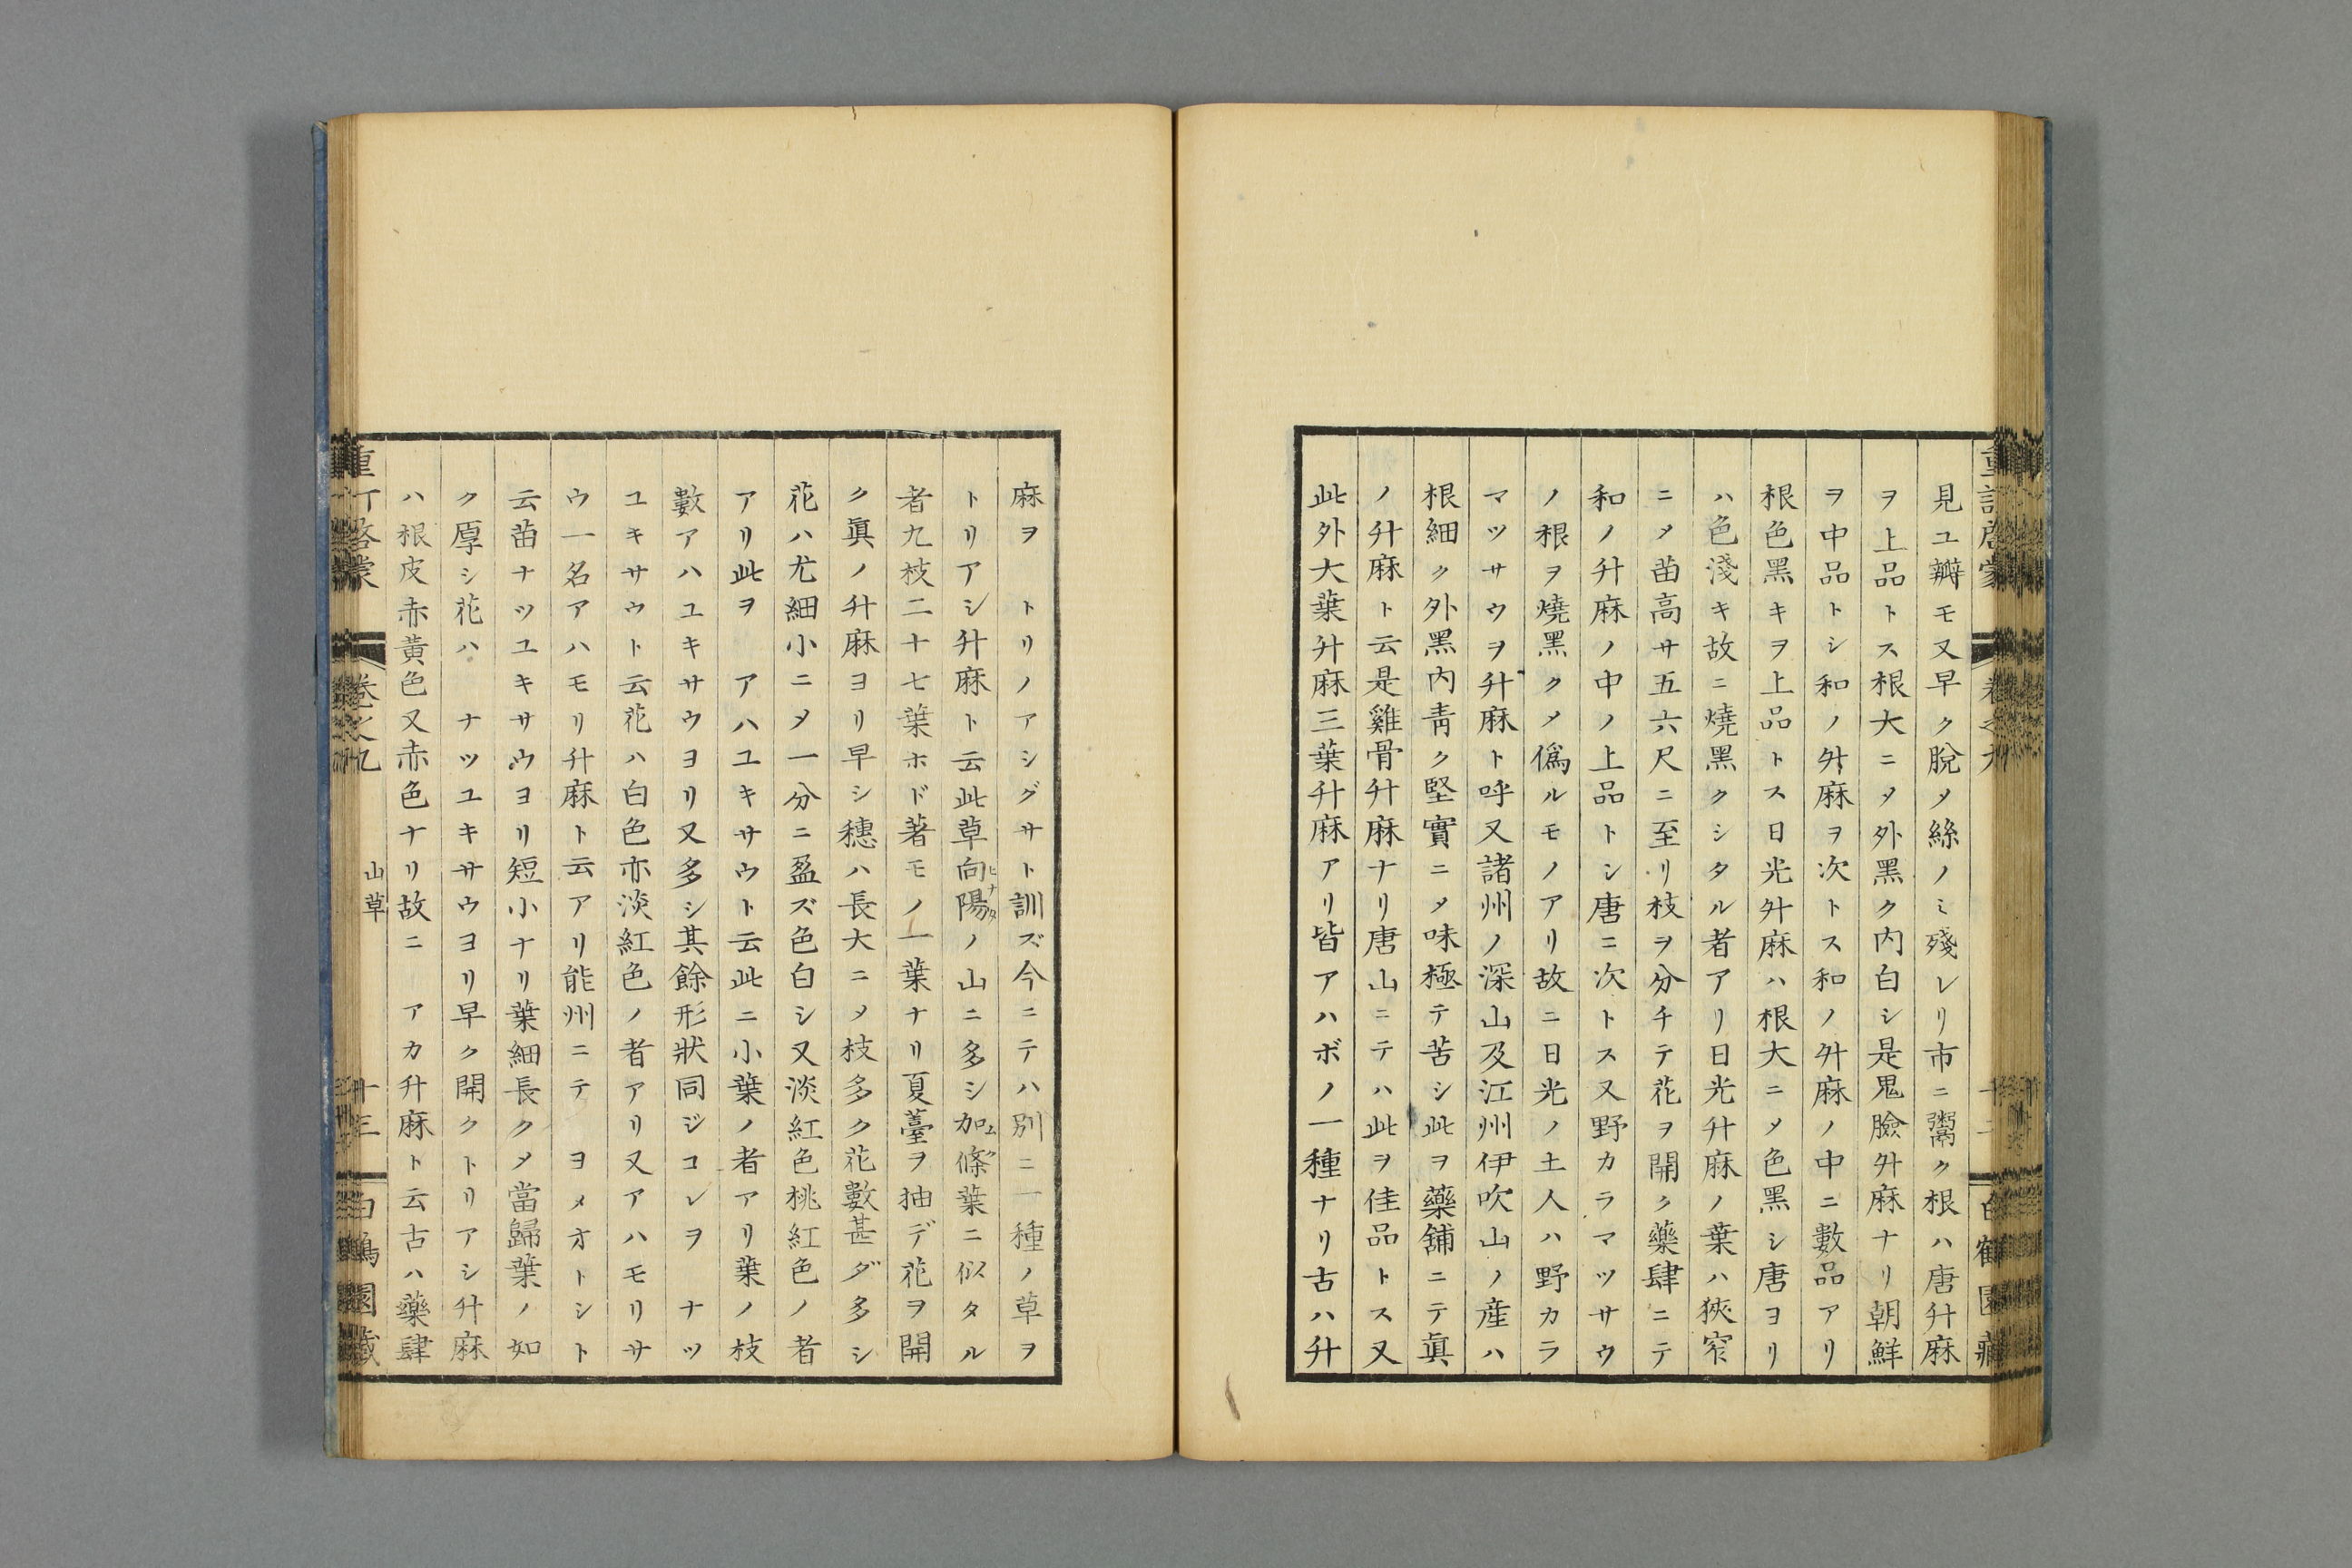 見ユ瓣モ又早ク脱〆絲ノミ殘レリ市ニ鬻ク根ハ唐升麻
ヲ上品トス根大ニ〆外黑ク内白シ是鬼臉升麻ナリ朝鮮
ヲ中品トシ和ノ升麻ヲ次トス和ノ升麻ノ中ニ數品アリ
根色黑キヲ上品トス日光升麻ハ根大ニ〆色黑シ唐ヨリ
ハ色淺キ故ニ燒黑クシタル者アリ日光升麻ノ葉ハ狹窄
ニ〆苗高サ五六尺ニ至リ枝ヲ分チテ花ヲ開ク藥肆ニテ
和ノ升麻ノ中ノ上品トシ唐ニ次トス又野カラマツサウ
ノ根ヲ燒黑ク〆僞ルモノアリ故ニ日光ノ土人ハ野カラ
マツサウヲ升麻ト呼又諸州ノ深山及江州伊吹山ノ産ハ
根細ク外黑内靑ク堅實ニ〆味極テ苦シ此ヲ藥舖ニテ眞
ノ升麻ト云是雞骨升麻ナリ唐山ニテハ此ヲ佳品トス又
此外大葉升麻三葉升麻アリ皆アハボノ一種ナリ古ハ升
麻ヲ トリノアシグサト訓ズ今ニテハ別ニ一種ノ草ヲ
トリアシ升麻ト云此草向陽ヒナタノ山ニ多シ加條ムク葉ニ似タル
者九枝二十七葉ホド著モノ一葉ナリ夏薹ヲ抽デ花ヲ開
ク眞ノ升麻ヨリ早シ穗ハ長大ニ〆枝多ク花數甚ダ多シ
花ハ尤細小ニ〆一分ニ盈ズ色白シ又淡紅色桃紅色ノ者
アリ此ヲ アハユキサウト云此ニ小葉ノ者アリ葉ノ枝
數アハユキサウヨリ又多シ其餘形狀同ジコレヲ ナツ
ユキサウト云花ハ白色亦淡紅色ノ者アリ又アハモリサ
ウ一名アハモリ升麻ト云アリ能州ニテ ヨメオトシト
云苗ナツユキサウヨリ短小ナリ葉細長ク〆當歸葉ノ如
ク厚シ花ハ ナツユキサウヨリ早ク開クトリアシ升麻
ハ根皮赤黃色又赤色ナリ故ニ アカ升麻ト云古ハ藥肆
山草